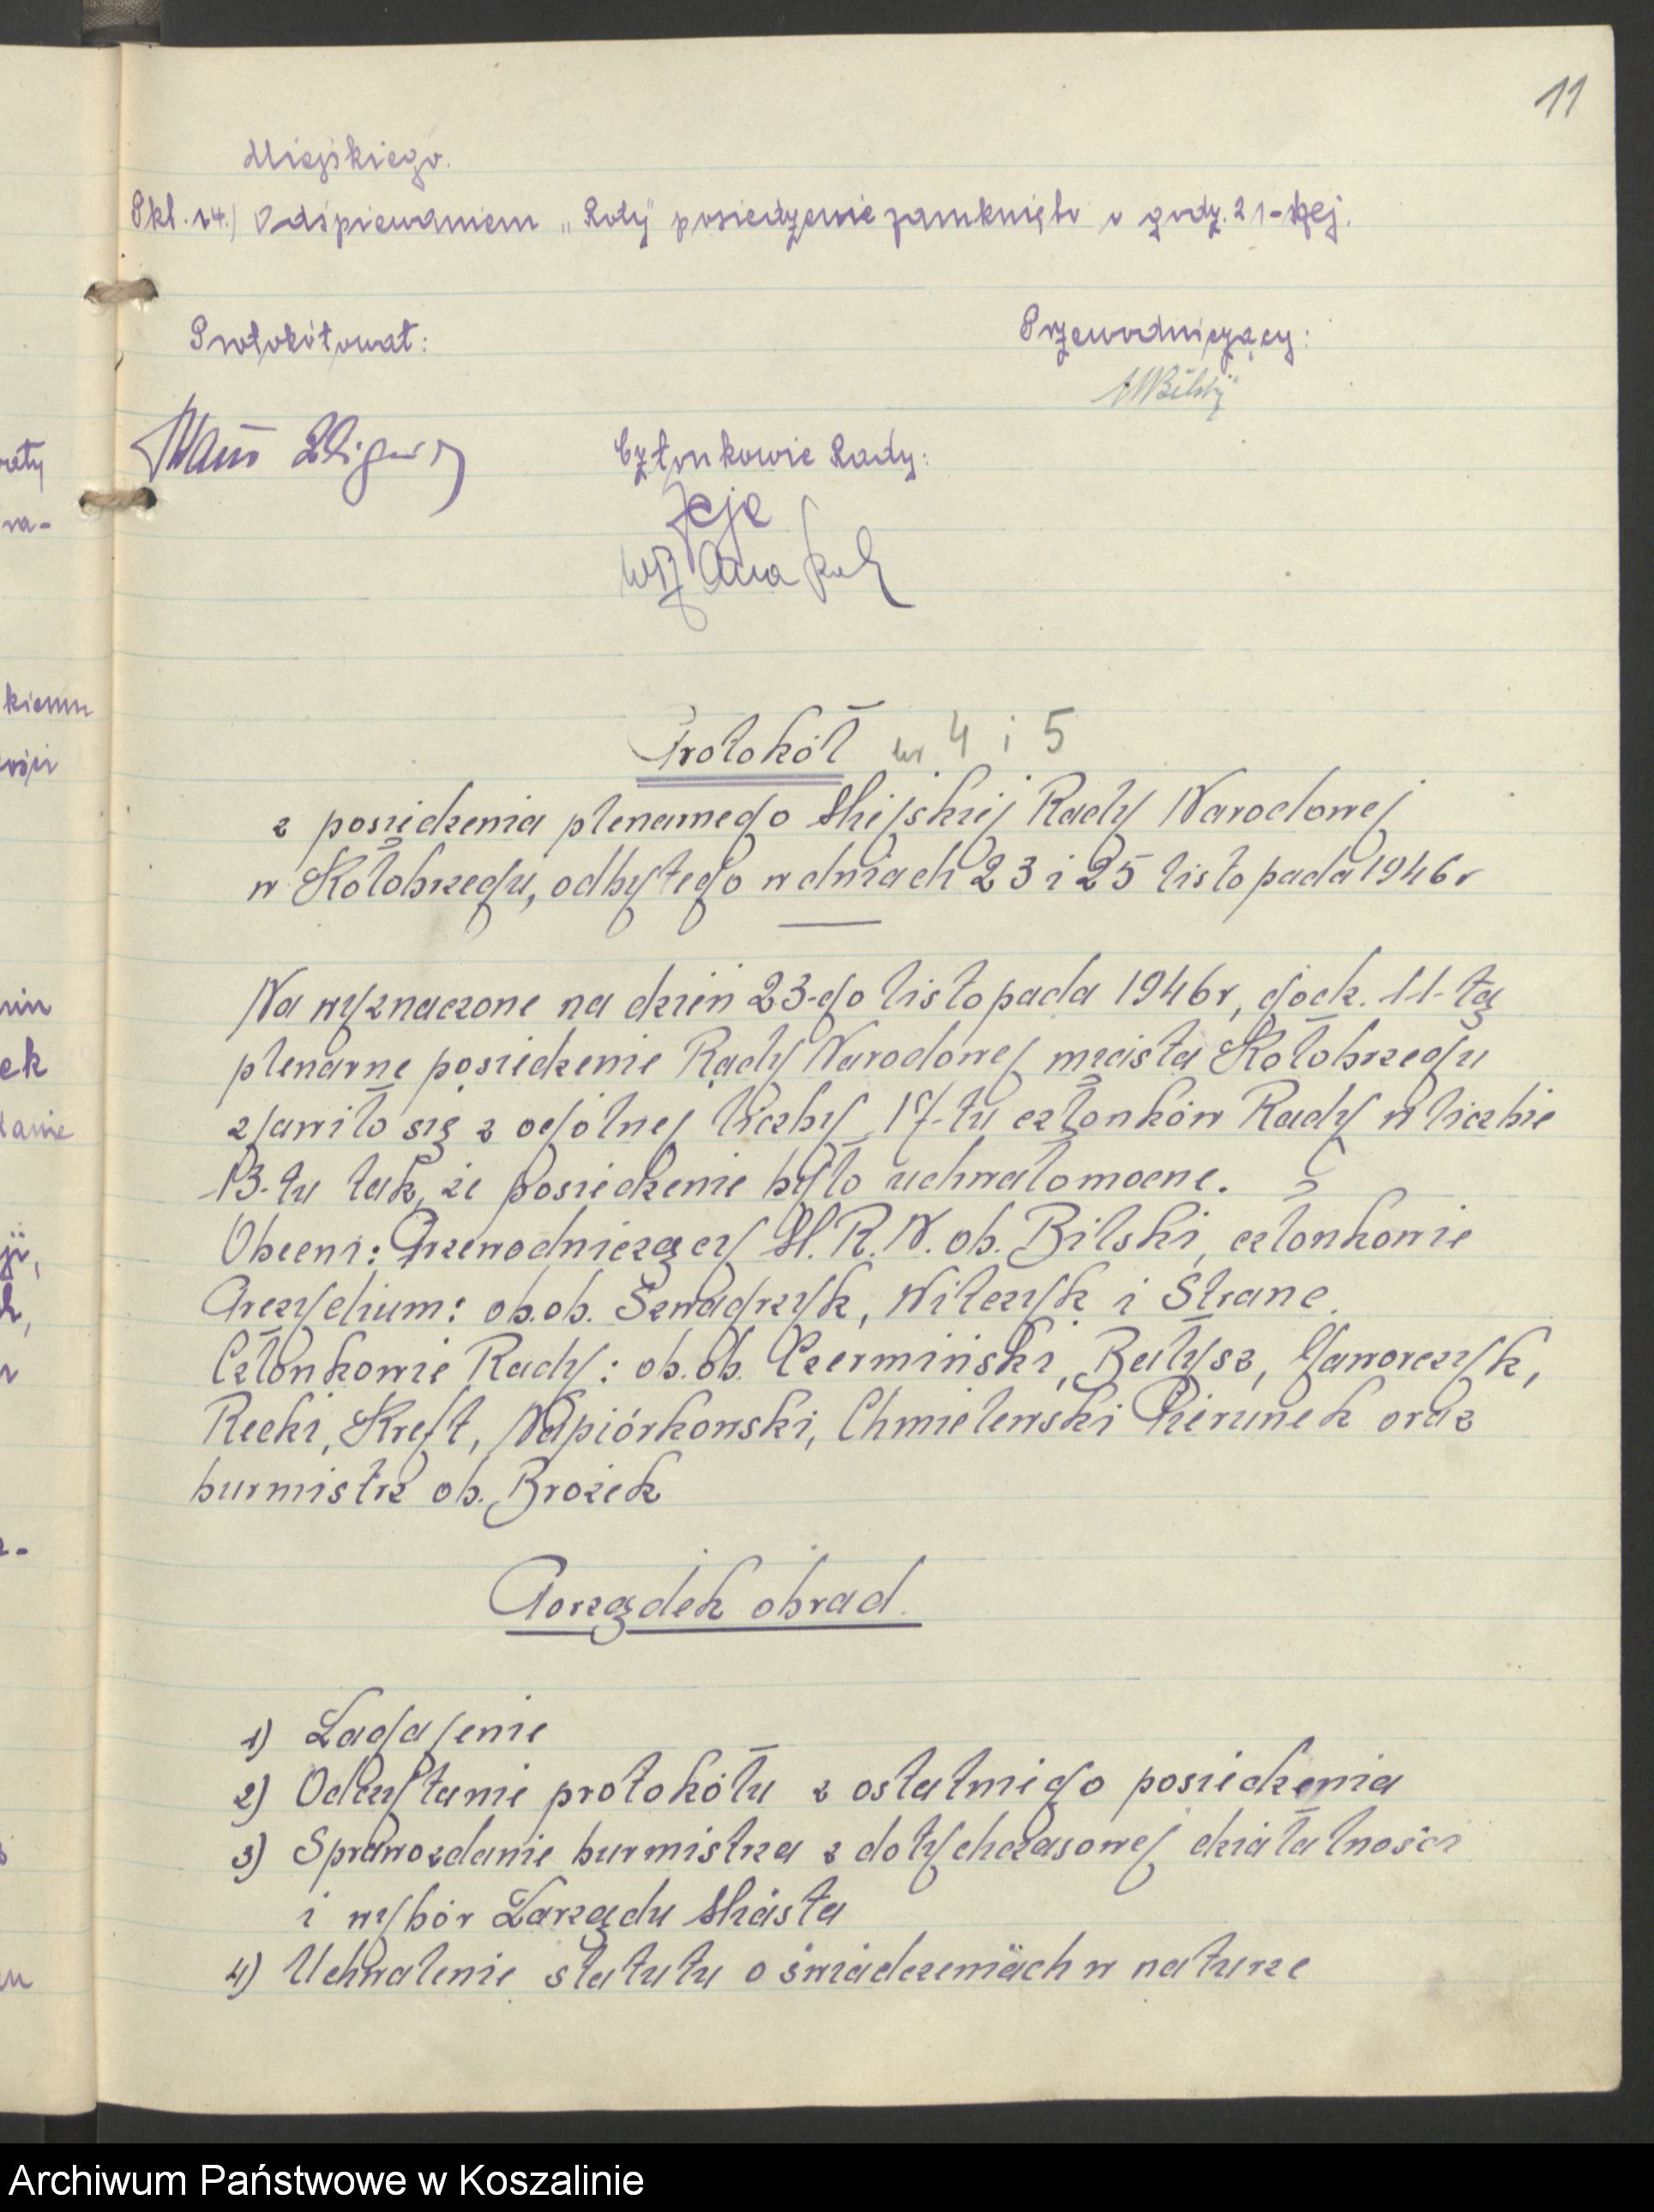 11
Miejskiego.
Pkt. 14.) Odśpiewaniem „Roty” posiedzenie zamknięto o godz. 21-szej.
Protokółował: Przewodniczący:
Członkowie Rady:
Protokół nr 4 i 5
z posiedzenia plenarnego Miejskiej Rady Narodowej
w Kołobrzegu, odbytego w dniach 23 i 25 listopada 1946 r
Na wyznaczone na dzień 23-go listopada 1946 r, godz. 11-tą
plenarne posiedzenie Rady Narodowej miasta Kołobrzegu
zjawiło się z ogólnej liczby 17-tu członków Rady w liczbie
13-tu tak, że posiedzenie było uchwałomocne.
Obecni: Przewodniczący M. R. N. ob. Bilski, członkowie
Prezydium: ob. ob. Szwagrzyk, Wilczyk i Stranc.
Członkowie Rady: ob. ob. Czermiński, Bałysz, Jaworczyk,
Recki, Kreft, Napiórkowski, Chmielewski Pierunek oraz
burmistrz ob. Brożek
Porządek obrad.
1) Zagajenie
2) Odczytanie protokółu z ostatniego posiedzenia
3) Sprawozdanie burmistrza z dotychczasowej działalności
i wybór Zarządu Miasta
4) Uchwalenie statutu o świadczeniach w naturze
raty
ra-
kiemu
ek
Archiwum Państwowe w Koszalinie